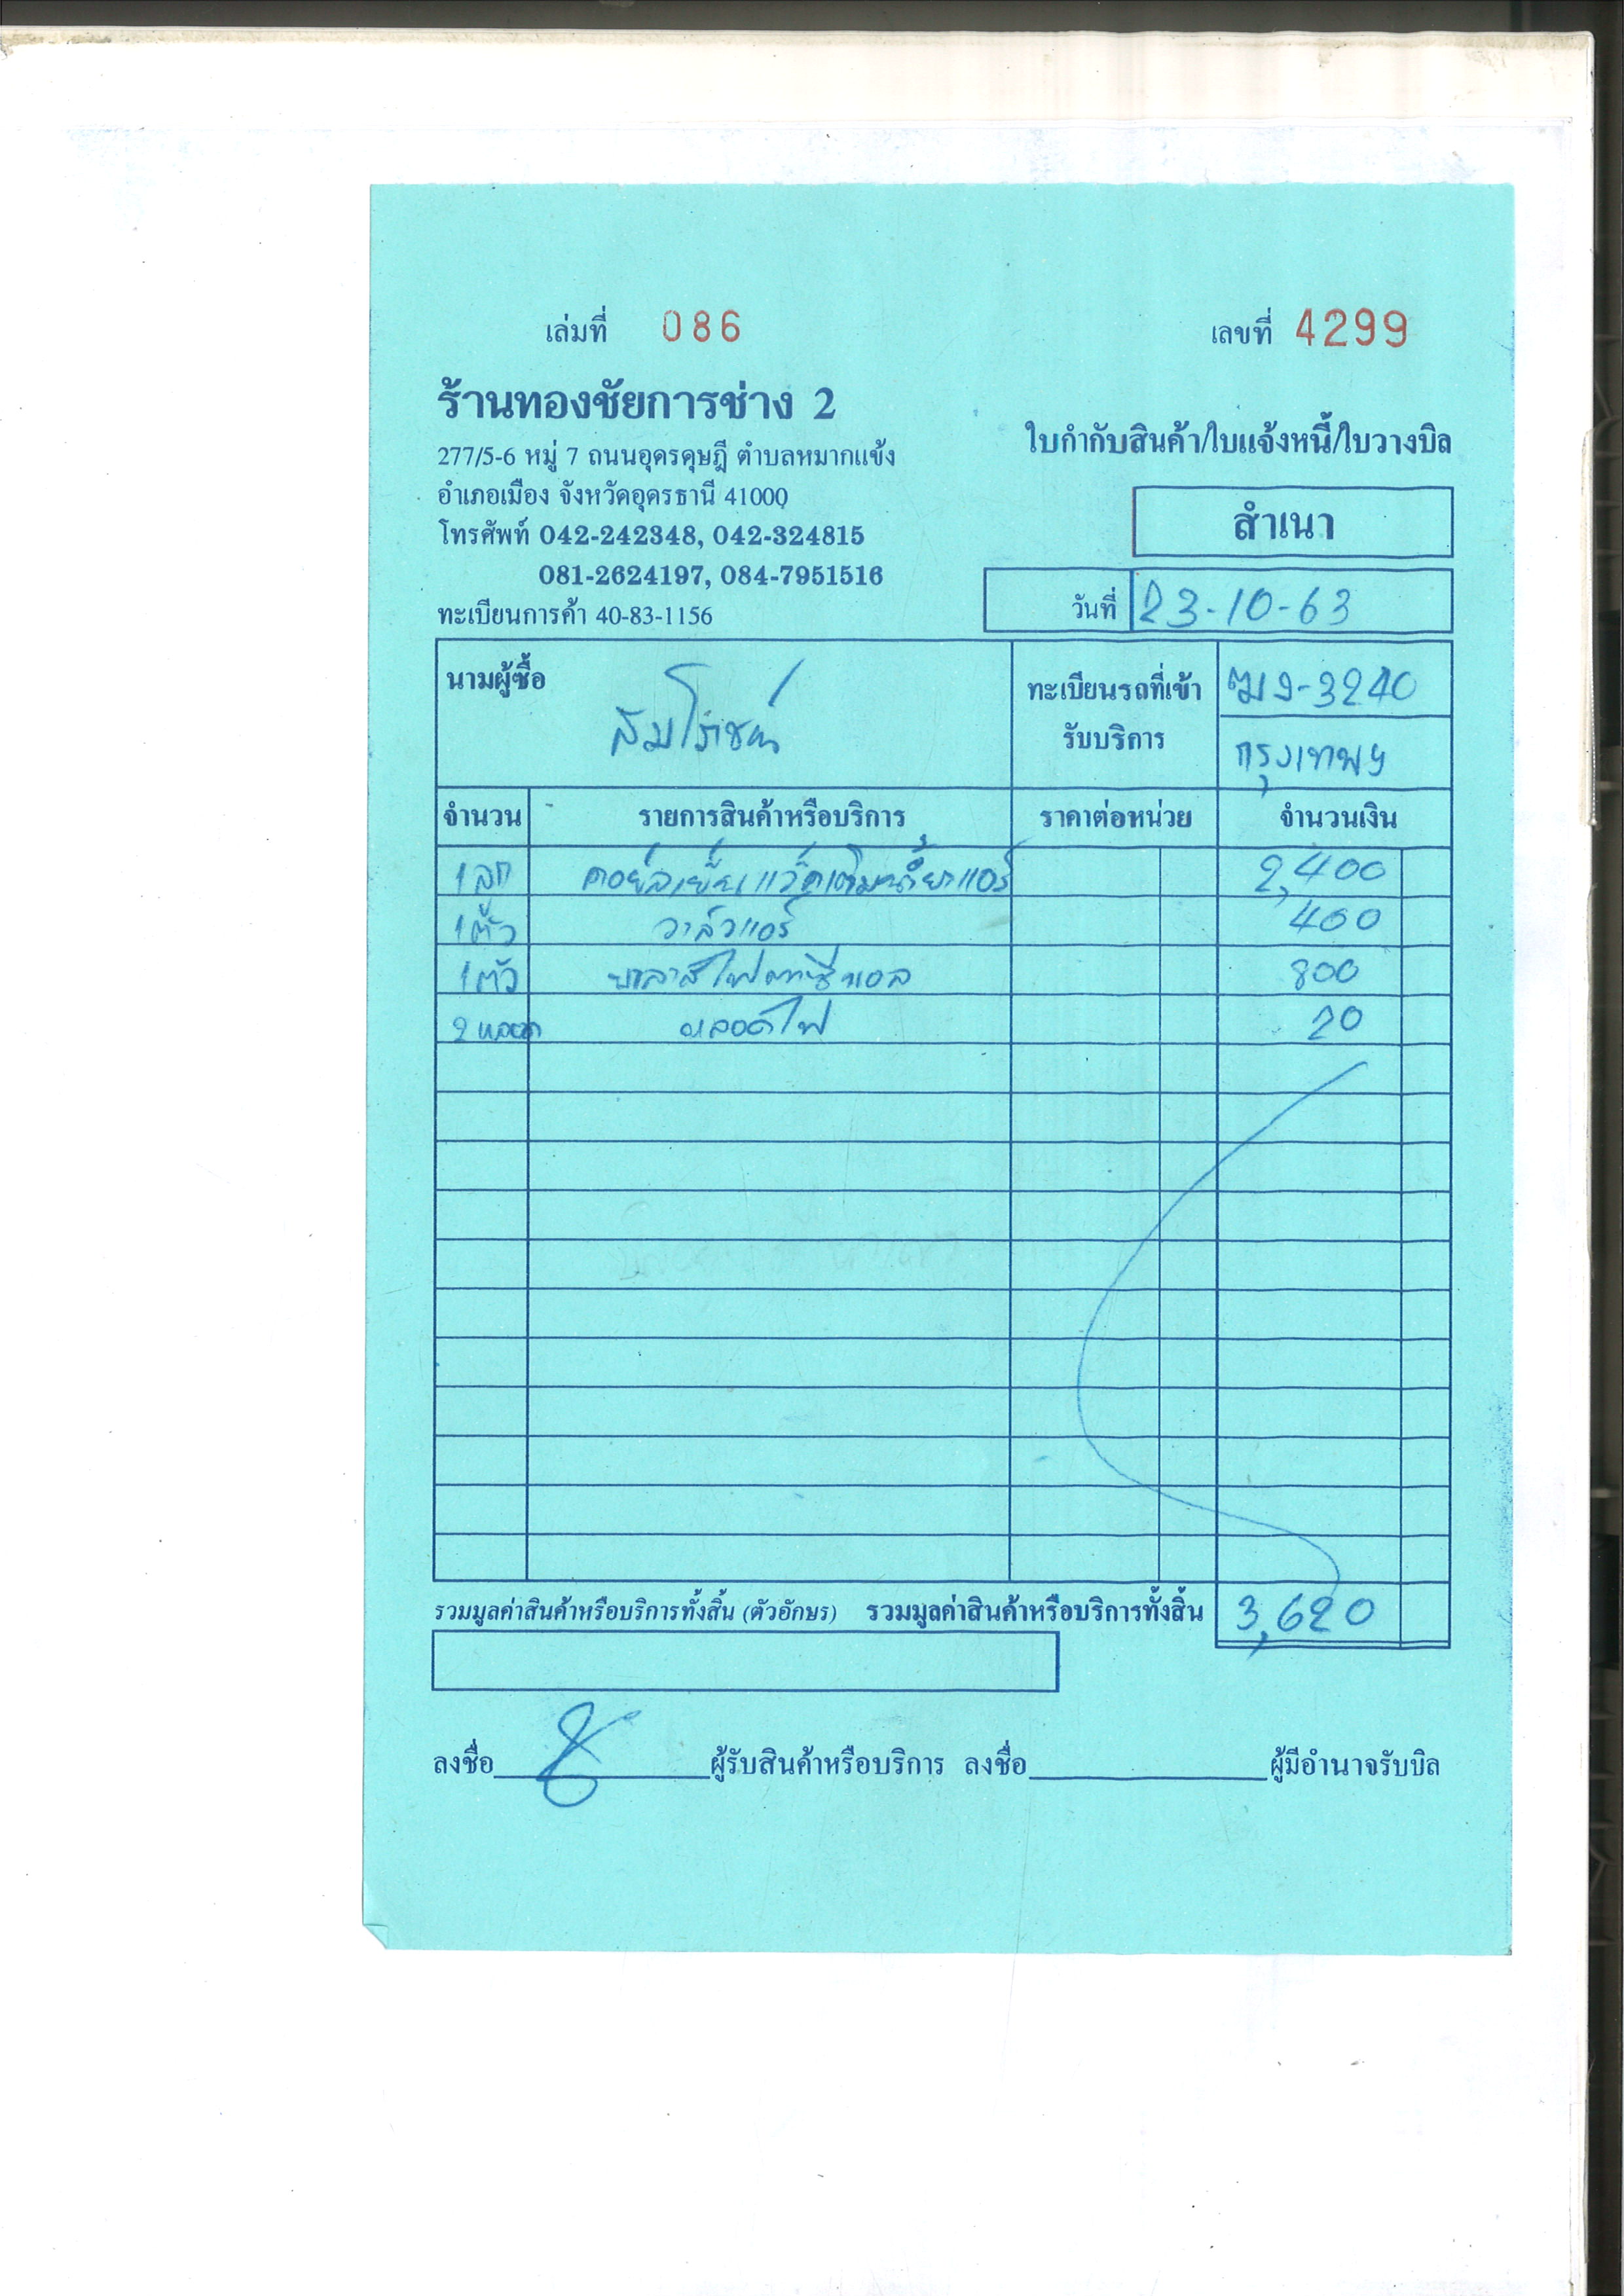 เล่มที่ 086
เลขที่ 4299
ร้านทองชัยการช่าง 2
ใบกำกับสินค้า/ใบแจ้งหนี้/ใบวางบิล
277/5-6 หมู่ 7 ถนนอุดรดุษฎี ตำบลหมากแข้ง
อำเภอเมือง จังหวัดอุดรธานี 41000
สำเนา
โทรศัพท์ 042-242348, 042-324815
081-2624197, 084-7951516
วันที่ 23-10-63
ทะเบียนการค้า 40-83-1156
นามผู้ซื้อ
ทะเบียนรถที่เข้ารับบริการ -3240
กรุงเทพฯ
จำนวน รายการสินค้าหรือบริการ ราคาต่อหน่วย จำนวนเงิน
1 ลูก คอย์ลเย็น แว็คเติมน้ำยาแอร์ 2,400
1 ตัว วาล์วแอร์ 400
1 ตัว 800
2 หลอด หลอดไฟ 20
รวมมูลค่าสินค้าหรือบริการทั้งสิ้น (ตัวอักษร) รวมมูลค่าสินค้าหรือบริการทั้งสิ้น 3,620
ลงชื่อ ผู้รับสินค้าหรือบริการ ลงชื่อ ผู้มีอำนาจรับบิล